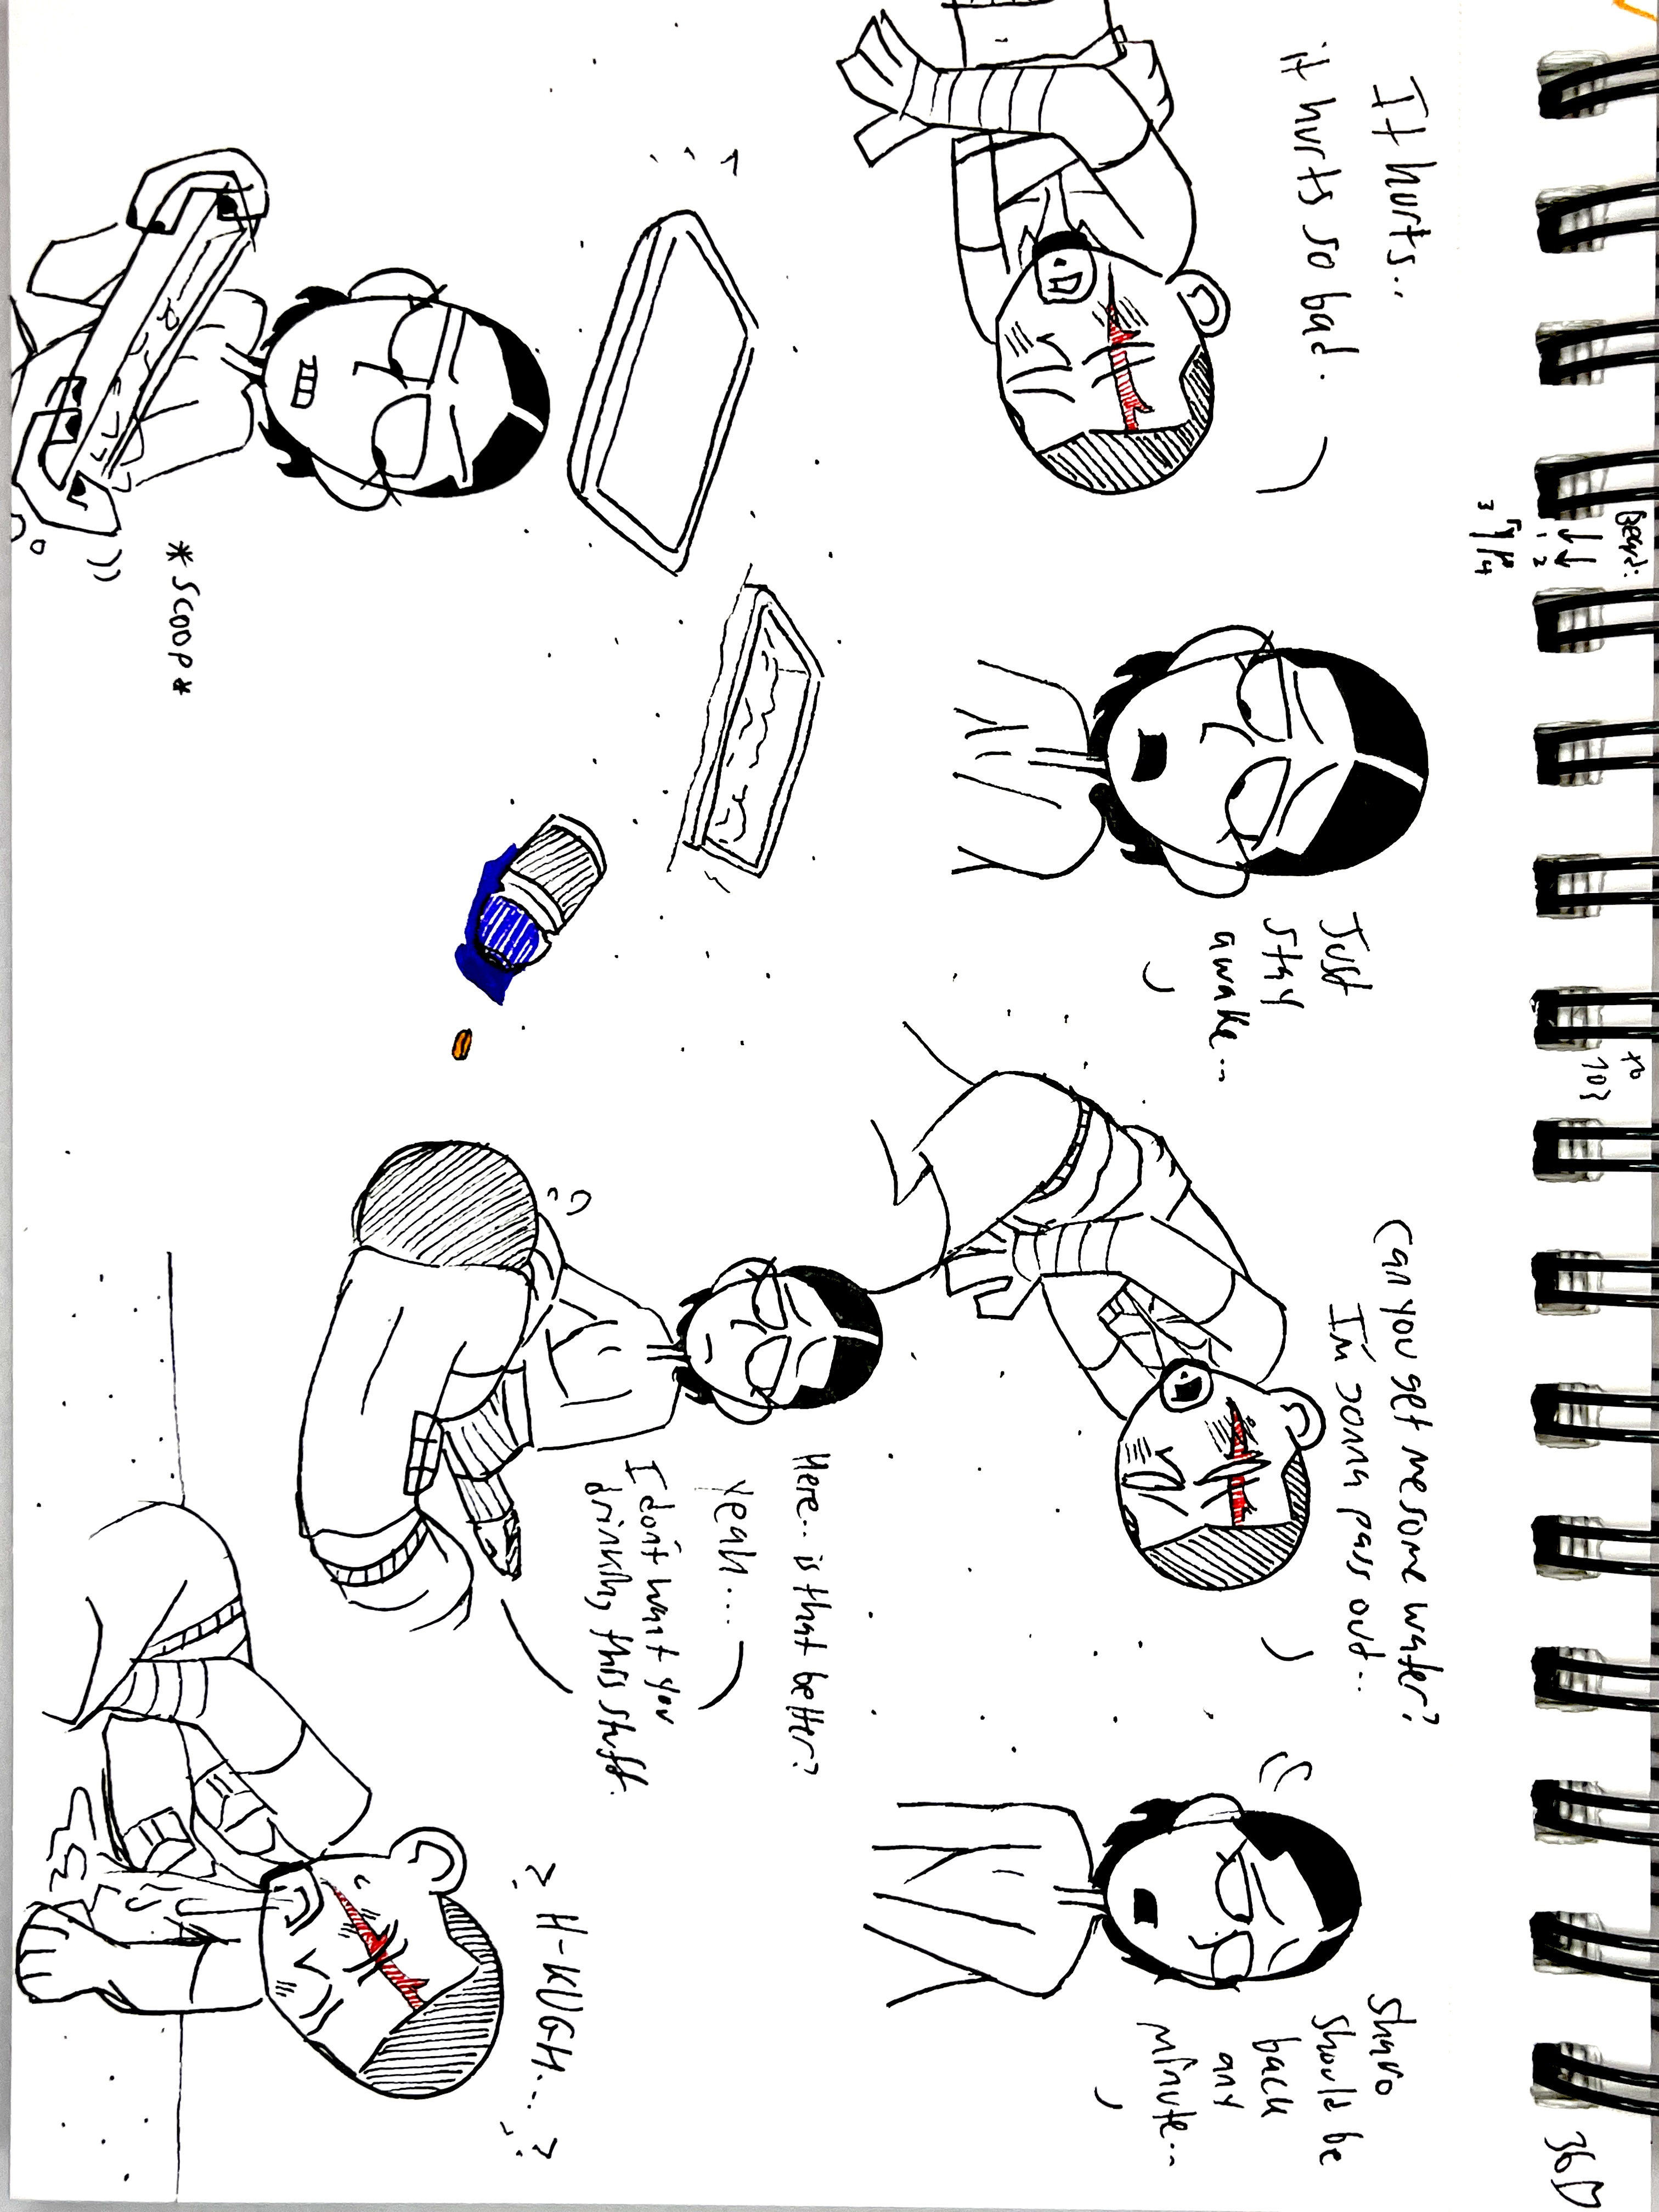 Beard:
1 2
3 4
to
103
36
It hurts..
it hurts so bad.
Just
stay
awake...
Can you get me some water?
I'm gonna pass out...
Sharo
should be
back
any
minute...
Here.. is that better?
Yeah...
I don't want you
drinking this stuff.
*SCOOP*
H-KUGH...